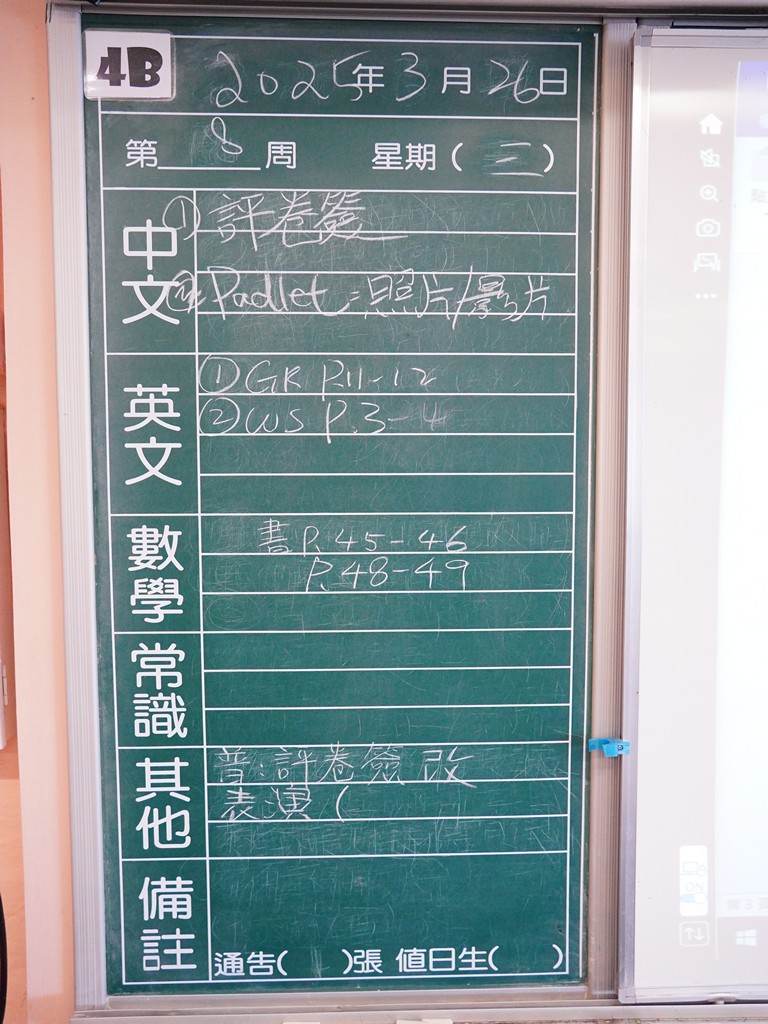 4B
2025年3月26日
第8周 星期(三)
中文
① 評卷簽
② Padlet:照片/影片
英文
① GK P.11-12
② WS P.3-4
數學
書P.45-46
P.48-49
常識
其他
普:評卷簽改
表演(
備註
通告( )張 值日生( )
ON